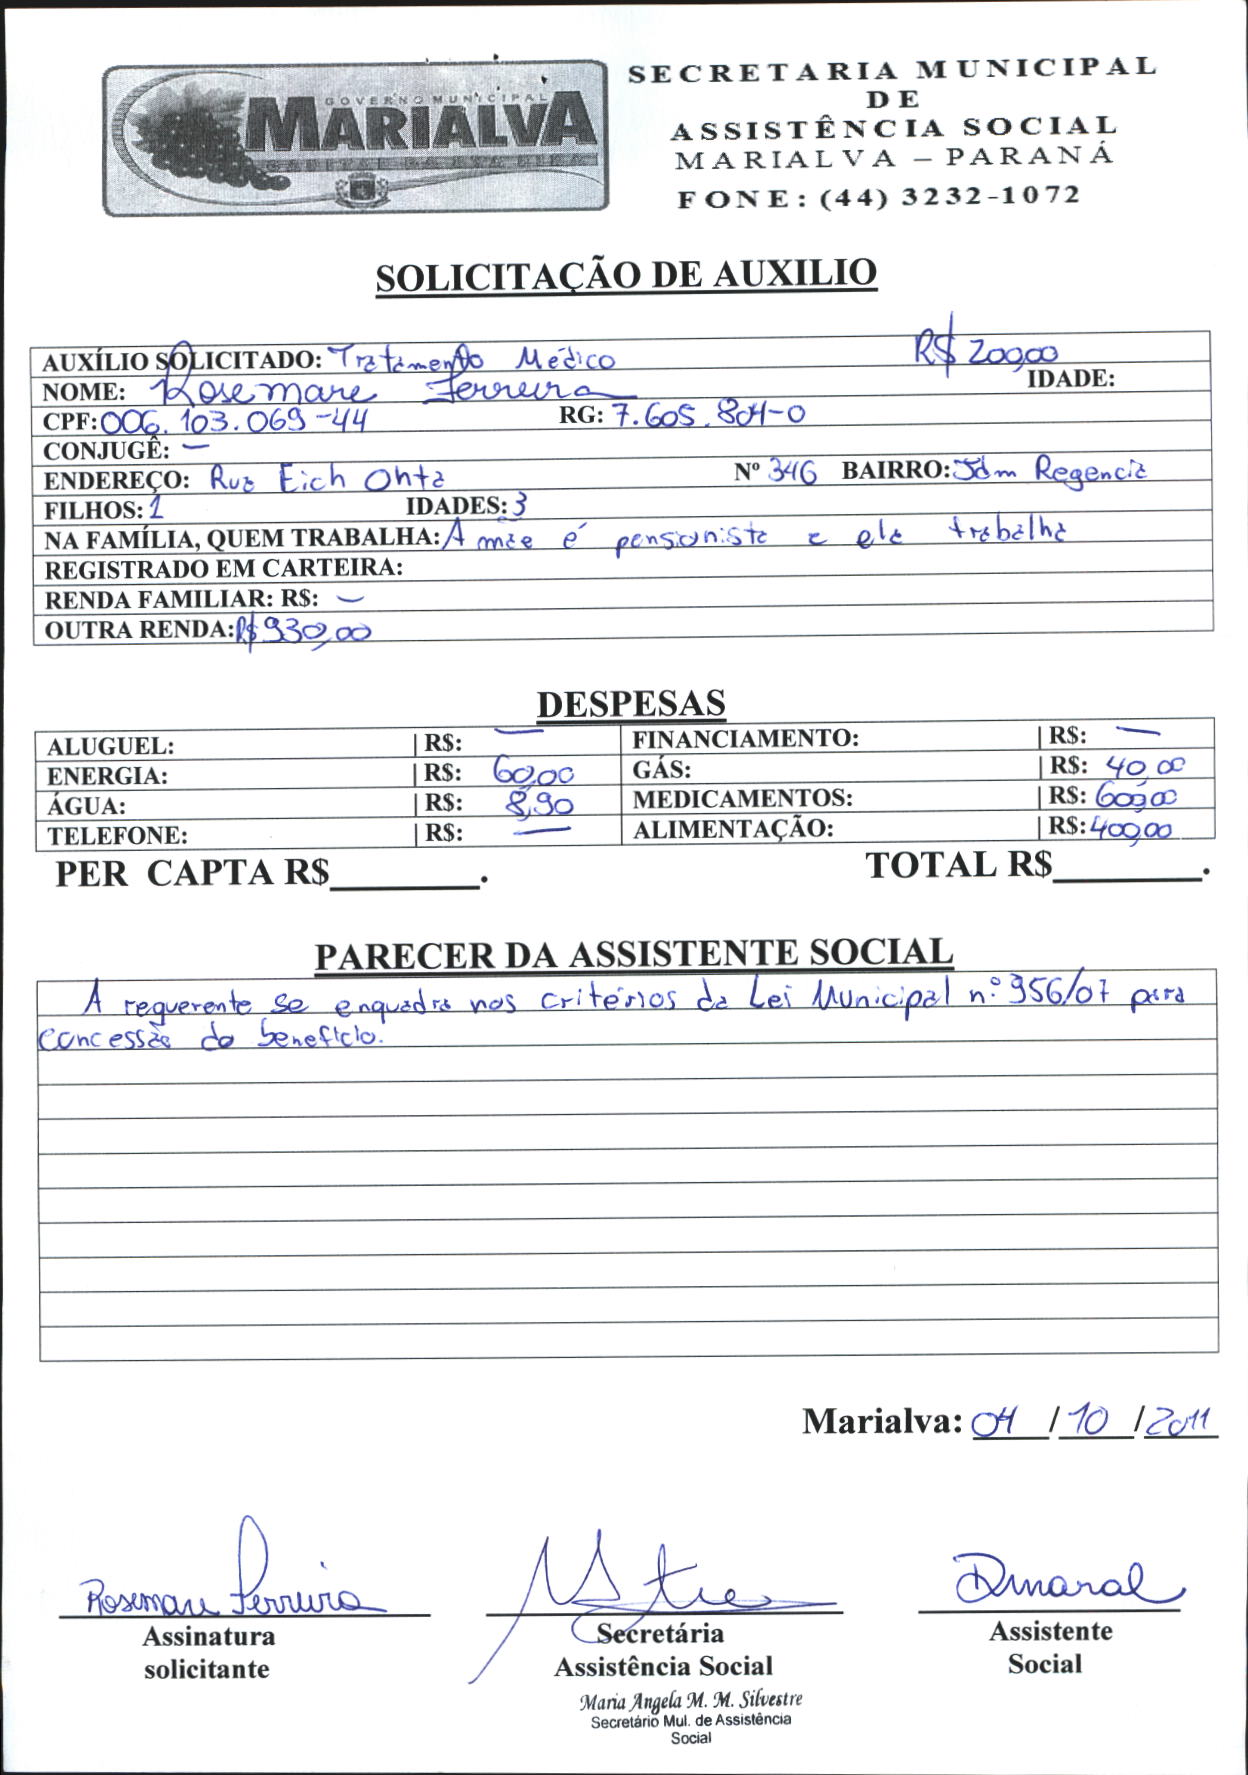 GOVERNO MUNICIPAL
MARIALVA
CAPITAL DA UVA FINA
SECRETARIA MUNICIPAL
DE
ASSISTÊNCIA SOCIAL
MARIALVA – PARANÁ
FONE: (44) 3232-1072
SOLICITAÇÃO DE AUXILIO
AUXÍLIO SOLICITADO: Tratamento Médico R$ 200,00
NOME: Rosemare Ferreira IDADE:
CPF: 006.103.069-44 RG: 7.605.804-0
CONJUGÊ: —
ENDEREÇO: Rua Eich Ohta Nº 346 BAIRRO: Jdm Regencia
FILHOS: 1 IDADES: 3
NA FAMÍLIA, QUEM TRABALHA: A mãe é pensionista e ela trabalha
REGISTRADO EM CARTEIRA:
RENDA FAMILIAR: R$: —
OUTRA RENDA: R$ 930,00
DESPESAS
ALUGUEL: | R$: — FINANCIAMENTO: | R$: —
ENERGIA: | R$: 60,00 GÁS: | R$: 40,00
ÁGUA: | R$: 8,90 MEDICAMENTOS: | R$: 600,00
TELEFONE: | R$: — ALIMENTAÇÃO: | R$: 400,00
PER CAPTA R$________. TOTAL R$________.
PARECER DA ASSISTENTE SOCIAL
A requerente se enquadra nos critérios da Lei Municipal n.º 956/07 para
concessão do benefício.
Marialva: 04 /10 /2011
Rosemare Ferreira Dmaral
Assinatura Secretária Assistente
solicitante Assistência Social Social
Maria Angela M. M. Silvestre
Secretário Mul. de Assistência
Social